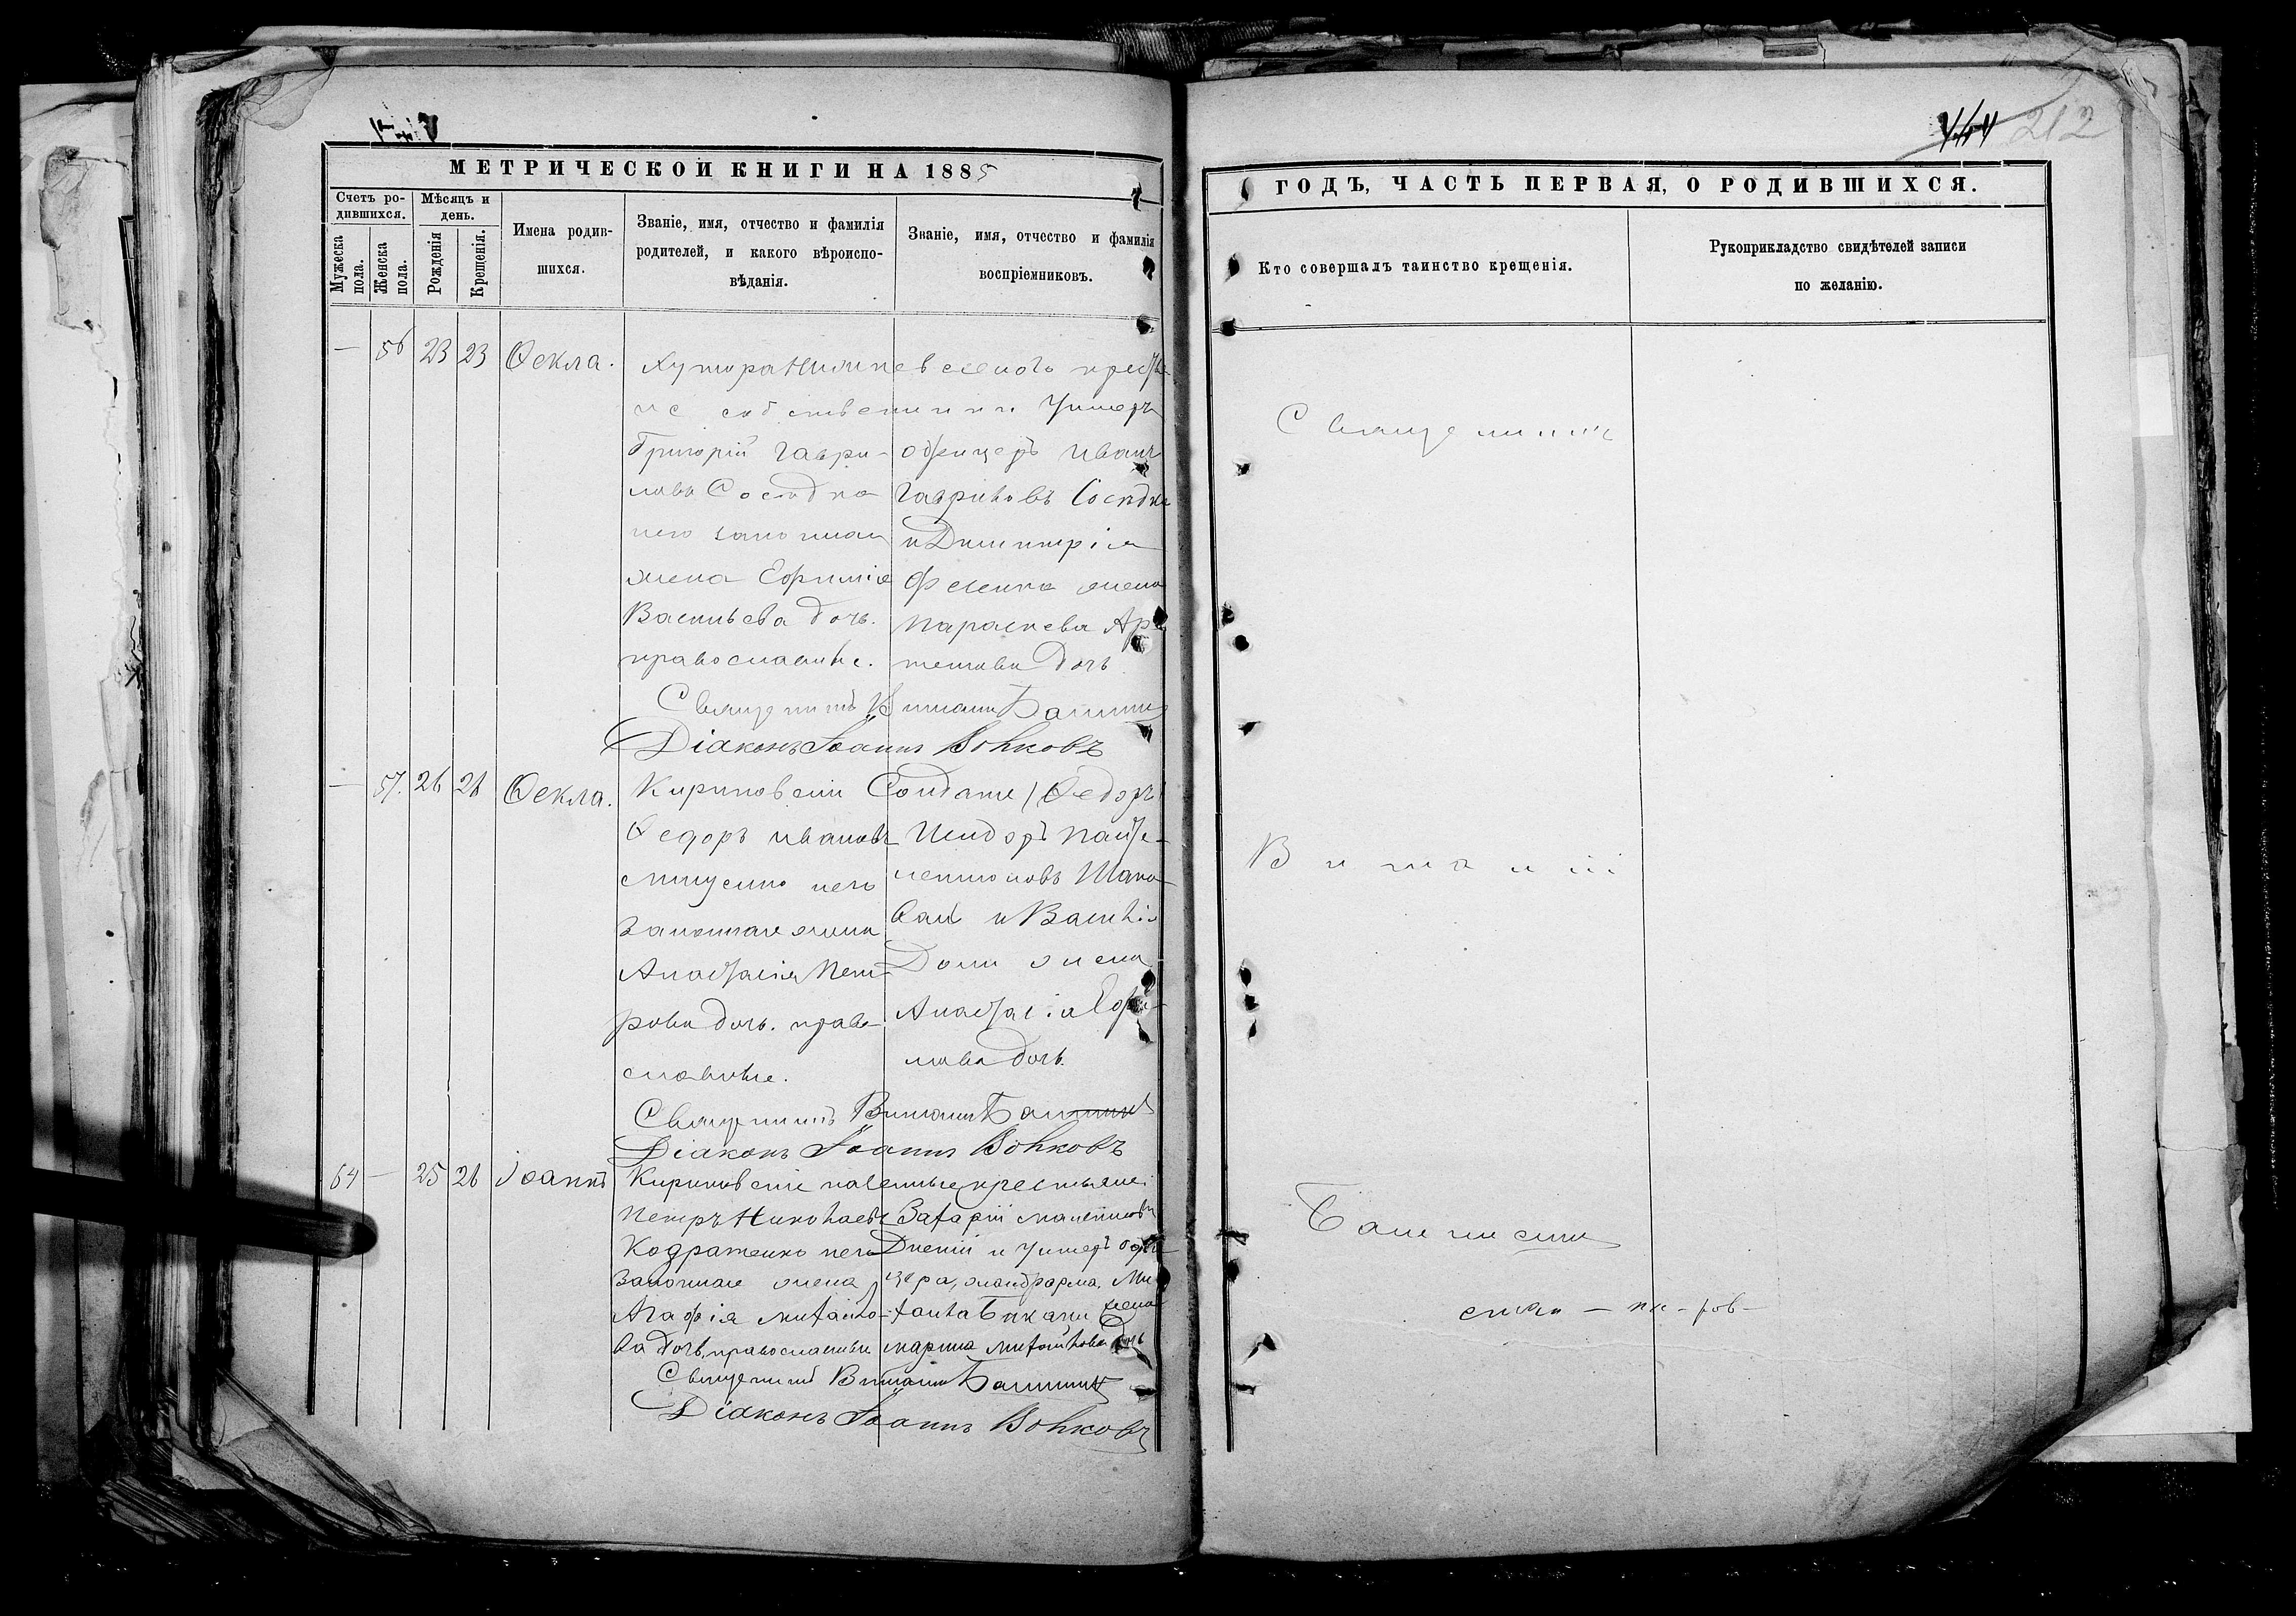 212
МЕТРИЧЕСКОЙ КНИГИ НА 1885
ГОДЪ, ЧАСТЬ ПЕРВАЯ, О РОДИВШИХСЯ.
Счетъ ро-
дившихся.
Мужеска
пола.
Женска
пола.
Мѣсяцъ и
день.
Рожденія
Крещенія.
Имена родив-
шихся.
Званіе, имя, отчество и фамилія
родителей, и какого вѣроиспо-
вѣданія.
Званіе, имя, отчество и фамилія
воспріемниковъ.
Кто совершалъ таинство крещенія.
Рукоприкладство свидѣтелей записи
по желанію.
— 56 23 23 Ѳекла.
Хутора
собственники Унтеръ
Григорій Гаври-
ловъ Сосѣдко
его законная
жена Ефимія
Васильева дочь.
православные.
офицеръ Иванъ
Гавриловъ Сосѣдко
и Димитрія
жена
Параскева Ар-
темова дочь
Священникъ Виталій
Діаконъ Іоаннъ Волковъ
— 57. 26 26 Ѳекла.
Кириловскіи Солдаты (Ѳедоръ)
Ѳедоръ Ивановъ
его
законная жена
Анастасія Пет-
рова дочь. право-
славные.
Исидоръ Панте-
леимоновъ Шапо-
вал и Василія
жена
Анастасія Ефи-
мова дочь.
Священникъ Виталій
Діаконъ Іоаннъ Волковъ
64 — 25 26 Іоаннъ
Кириловскіе казенные крестьяне:
Петръ Николаевъ
Кодратенко его
законная жена
Агафія Михайло-
ва дочь, православные
Захарій
и Унтеръ офи-
цера, жандарма, Ми-
хаила жена
Марина Михайлова дочь
Священникъ Виталій
Діаконъ Іоаннъ Волковъ
Священникъ
Виталій